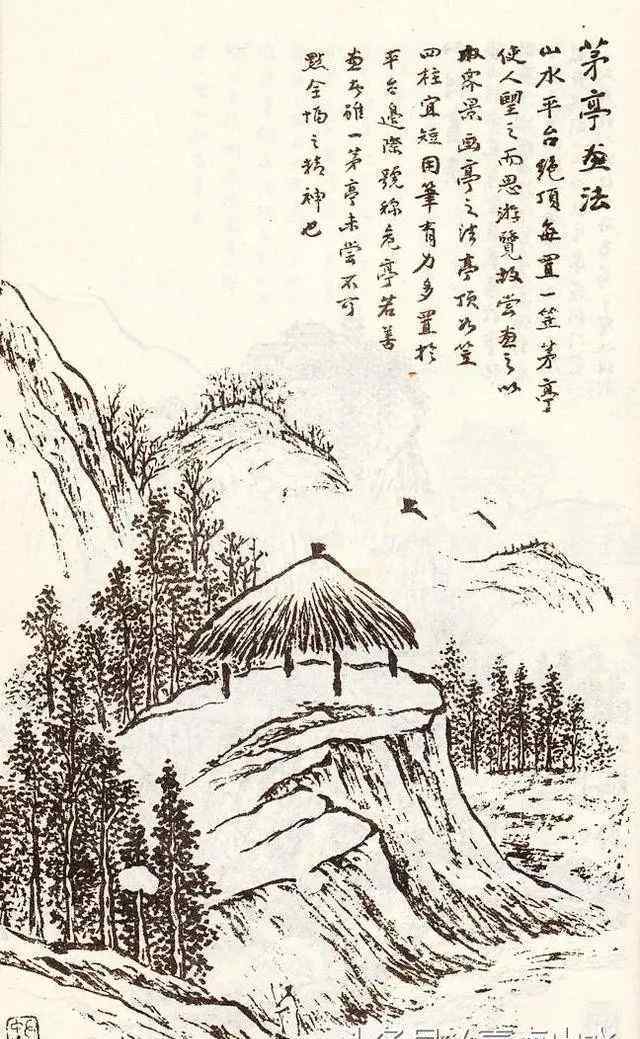 茅亭畫法
山水平台絶頂每置一笠茅亭
使人望之而思游覽故嘗畫之以
取客景画亭之法亭頂如笠
四柱宜短用筆有力多置於
平台邊際號稱危亭若善
畫者雖一茅亭未嘗不可
點全幅之精神也